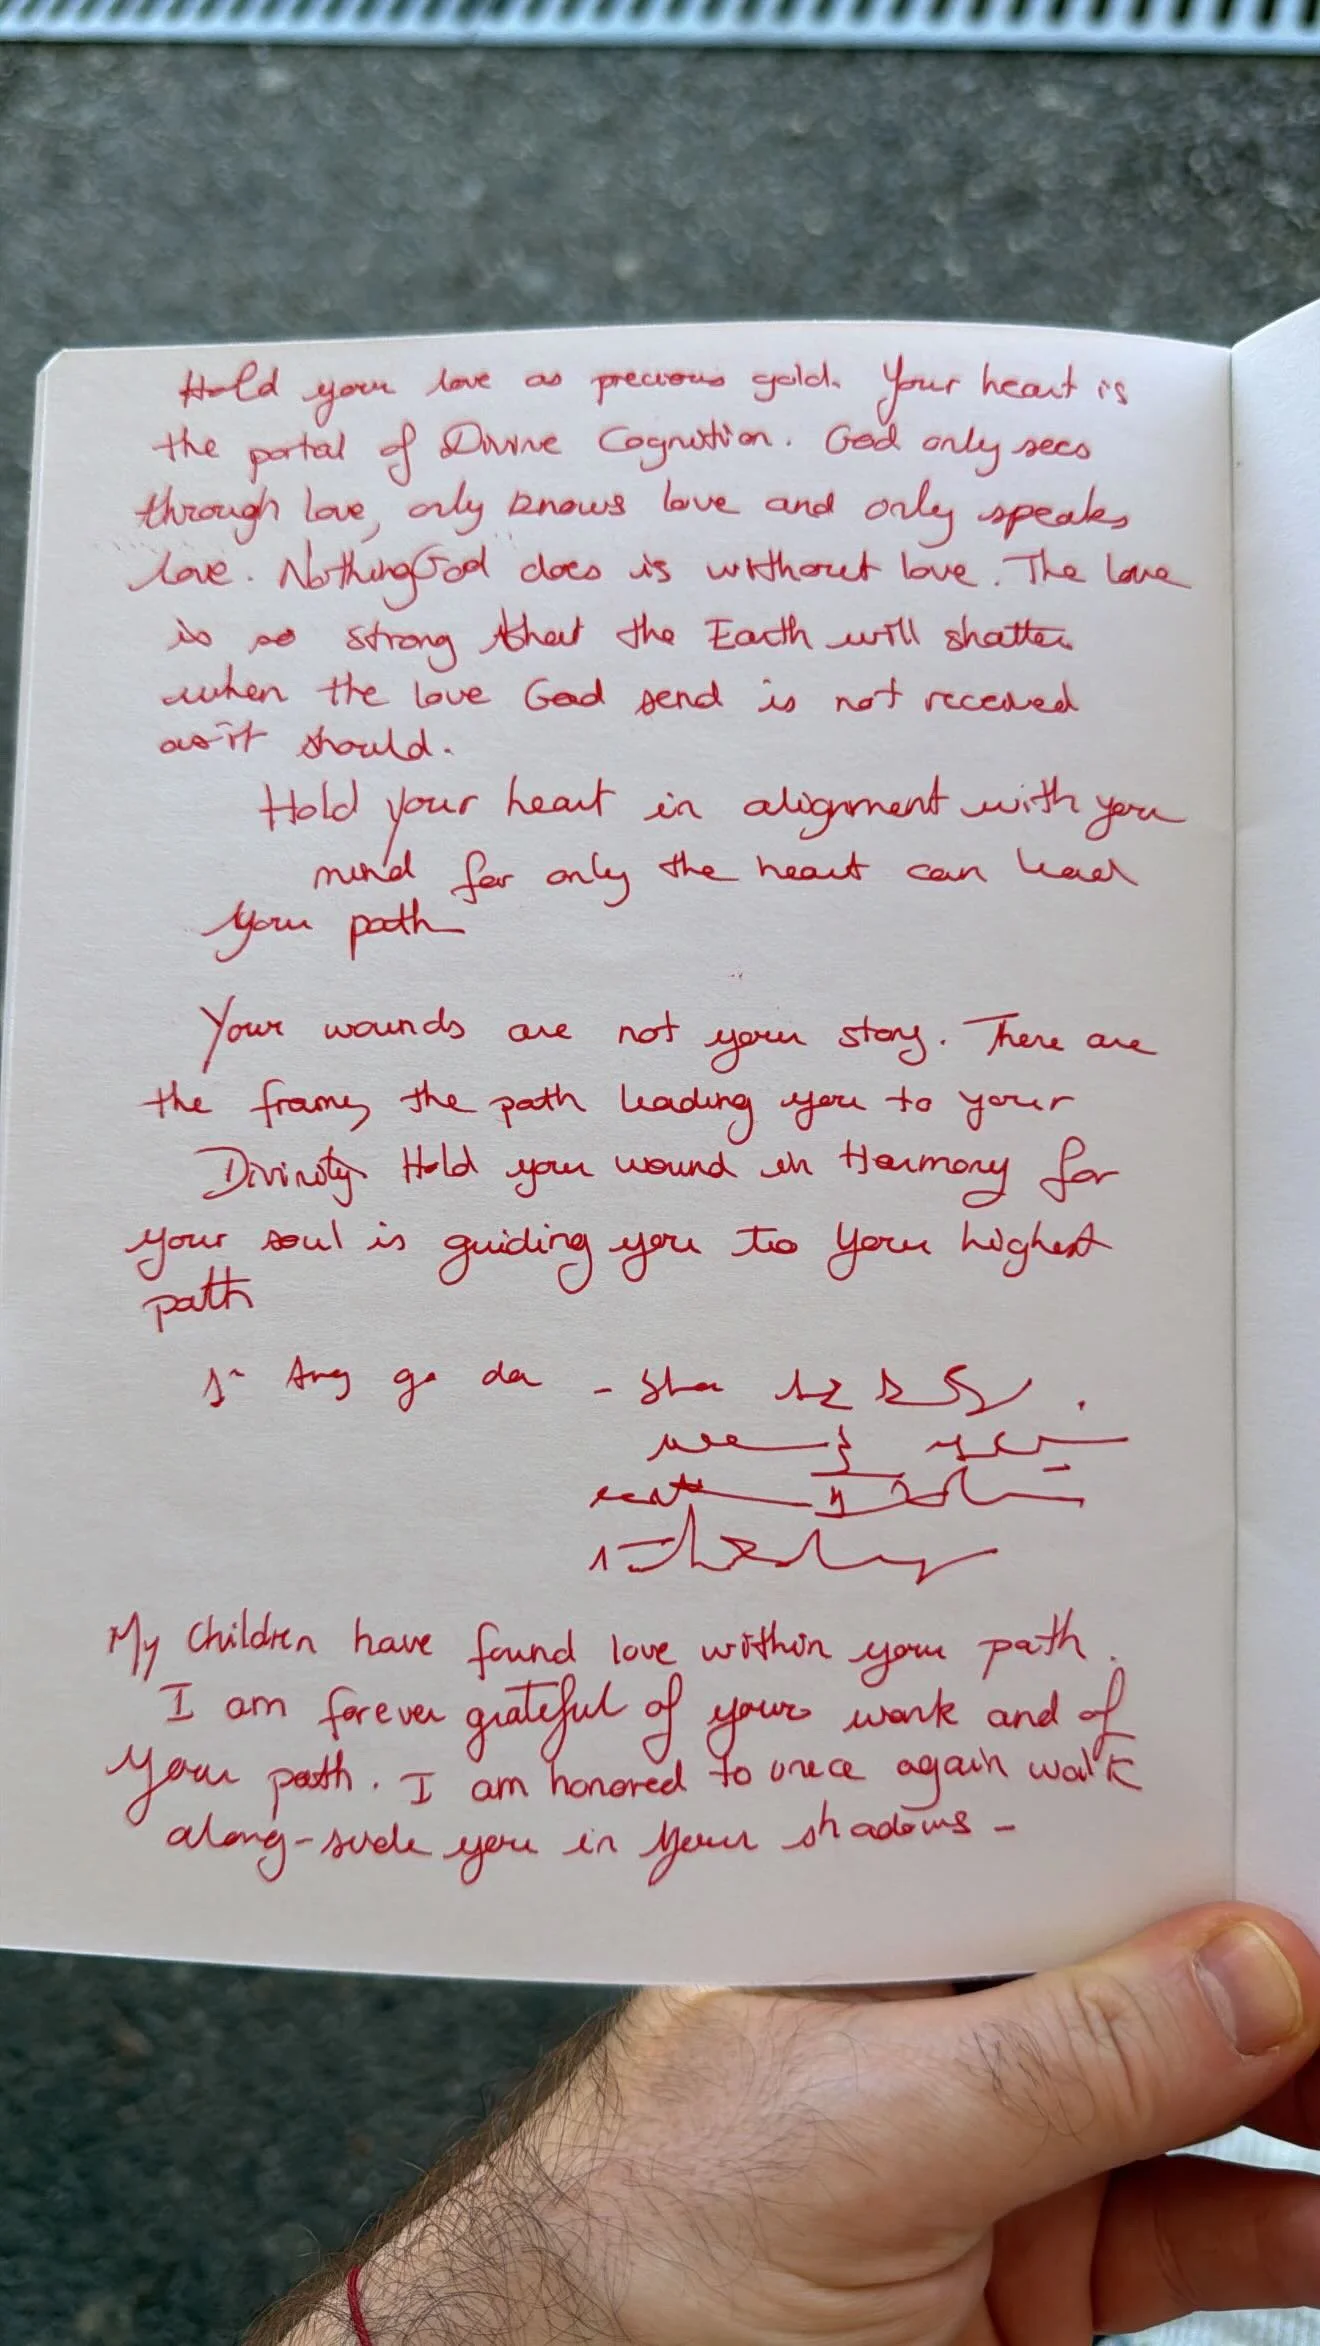 Hold your love as precious gold. Your heart is
the portal of Divine Cognition. God only sees
through love, only knows love and only speaks
love. Nothing God does is without love. The love
is so strong that the Earth will shatter
when the love God send is not received
as it should.
Hold your heart in alignment with your
mind for only the heart can lead
your path
Your wounds are not your story. There are
the frame, the path leading you to your
Divinity. Hold your wound in Harmony for
your soul is guiding you to your highest
path
Ang go da - Sha
My Children have found love within your path.
I am forever grateful of your work and of
your path. I am honored to once again walk
along-side you in your shadows -